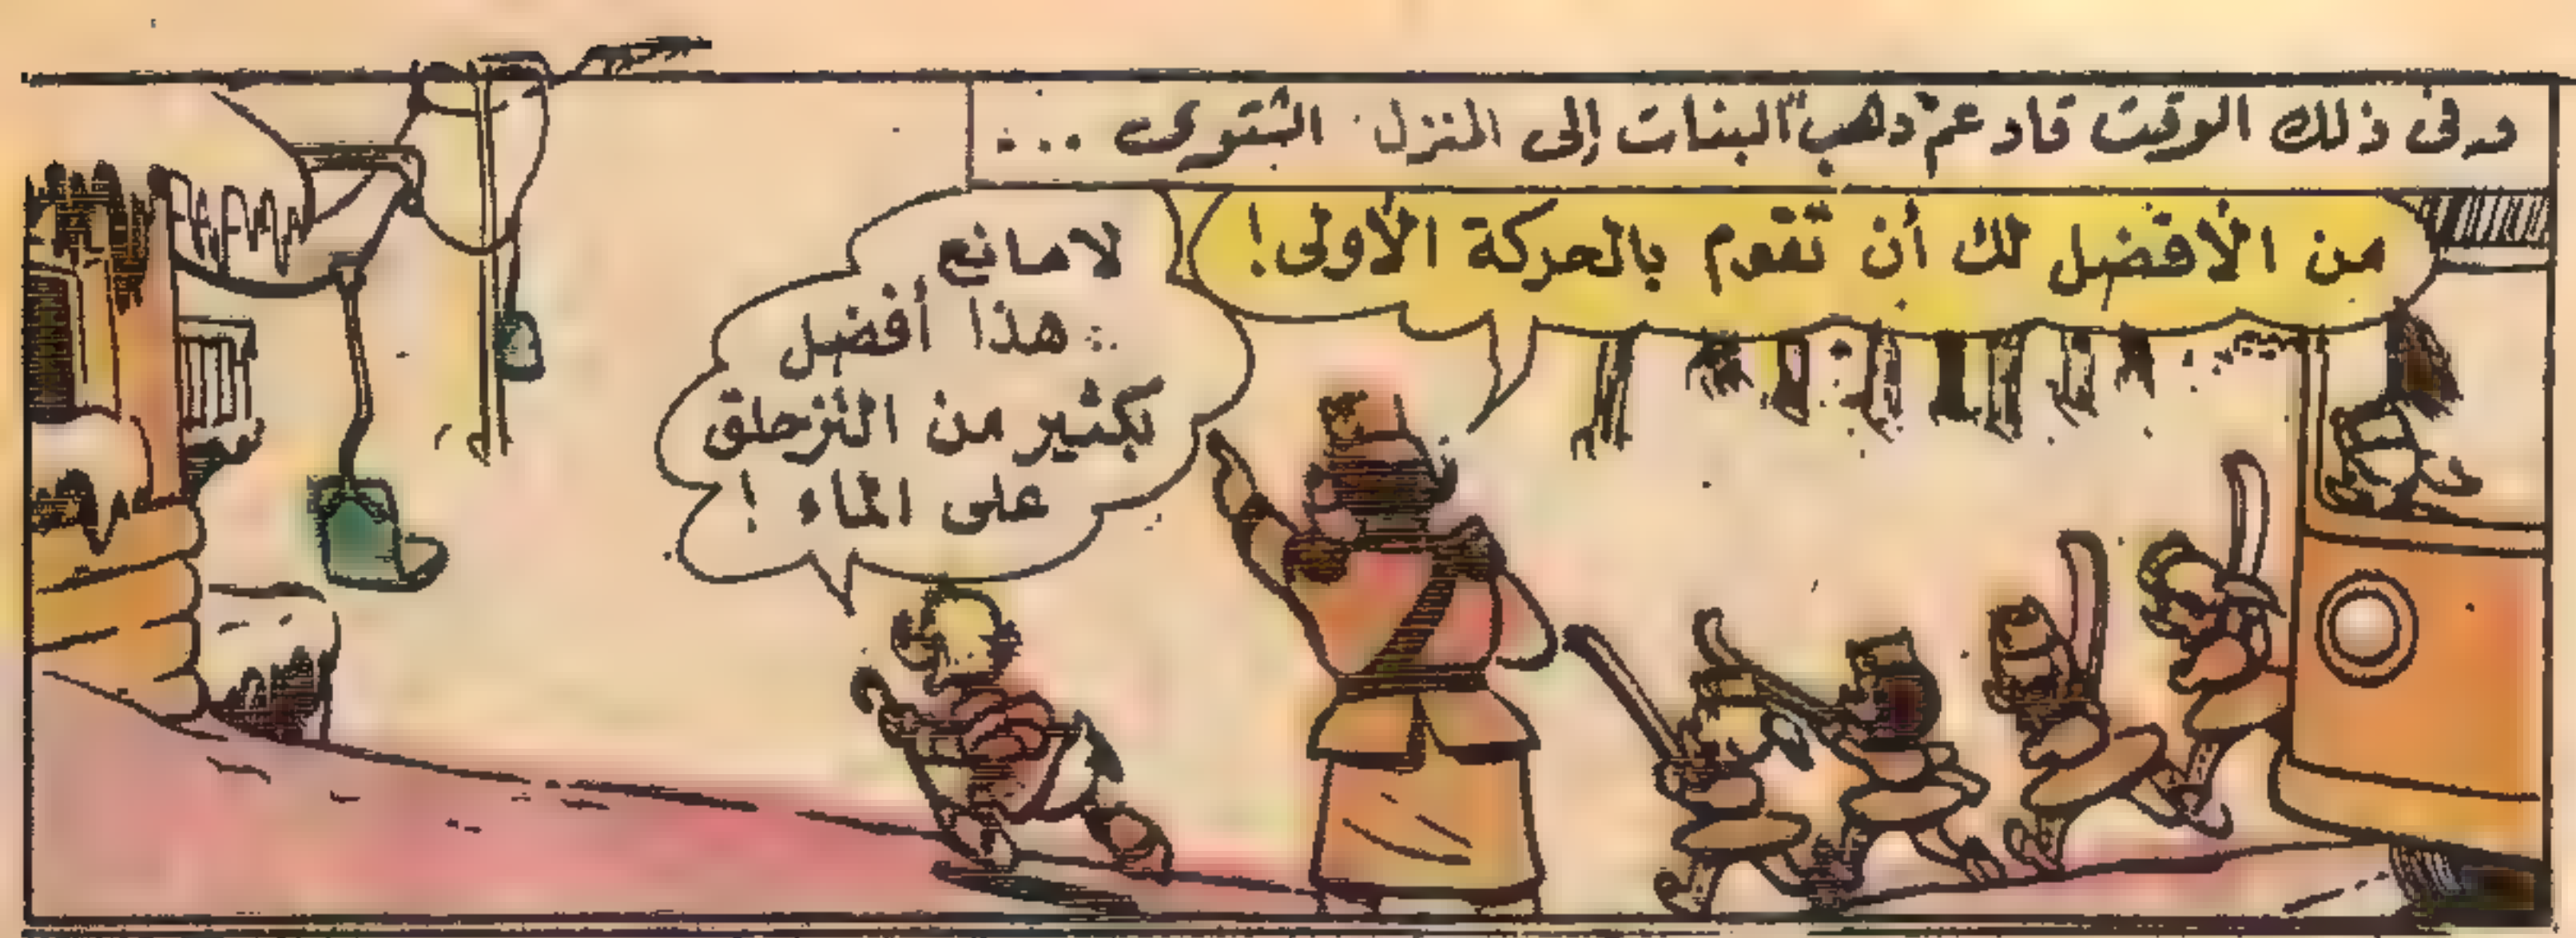 وفى ذلك الوقت قاد عم "دهب" البنات إلى المنزل الشتوى ...
من الأفضل لك أن تقوم بالحركة الأولى!
لا مانع
.. هذا أفضل
بكثير من التزحلق
على الماء !